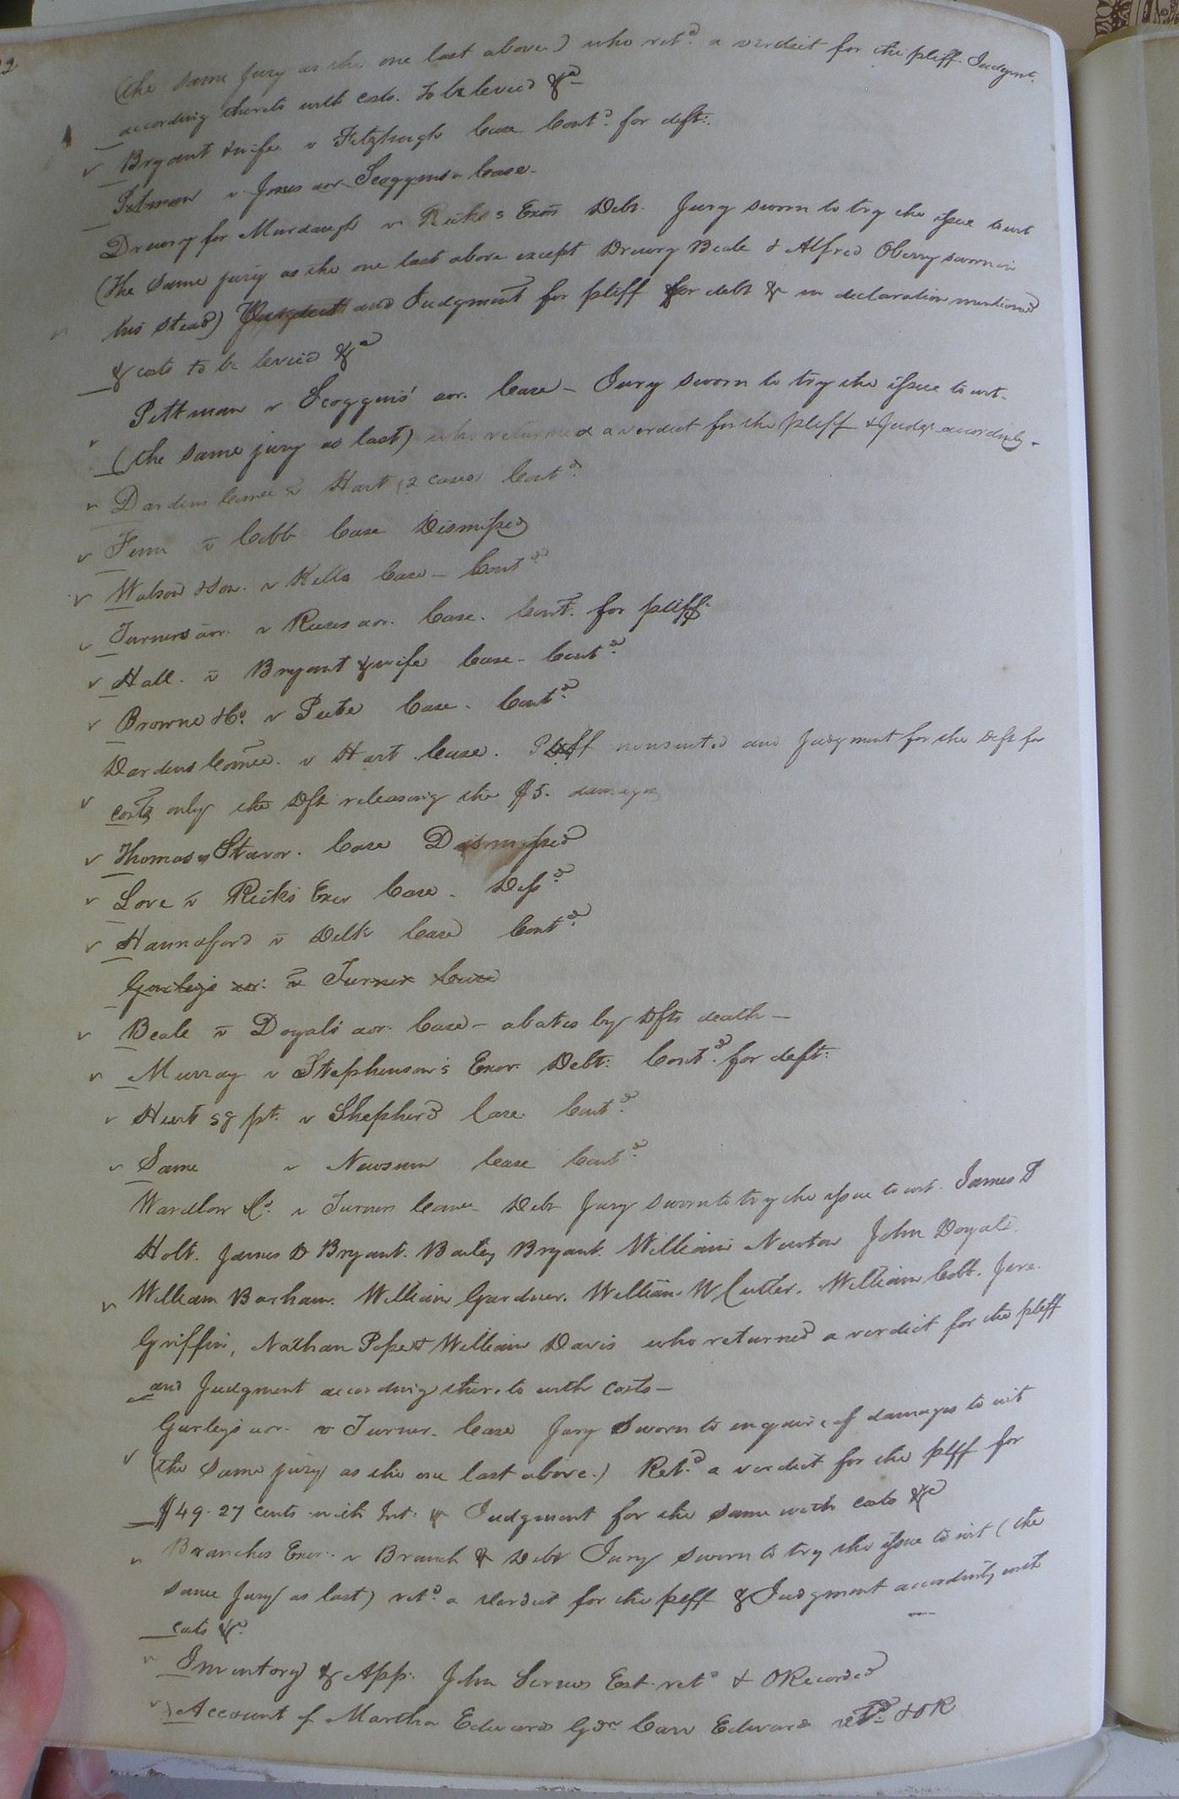 (the same jury as the one last above) who retd. a verdict for the pliff. Judgmt.
according thereto with costs. To be levied &a
Bryant & wife v Fitzhugh Case Contd. for deft.
Pitman v Jones aor. Scoggins Case.
Drewry for Murdaugh v Ricks's Exors Debt. Jury sworn to try the issue to wit
(the same jury as the one last above except Drewry Beale & Alfred Oberry sworn in
his stead) and Judgment for pliff for debt & in declaration mentioned
& costs to be levied &a
Pittman v Scoggins' aor. Case - Jury sworn to try the issue to wit.
(the same jury as last) who returned a verdict for the pliff & Judgt accordingly.
Dardens Comee v Hart (2 cases) Contd.
Fenn v Cobb Case Dismissed
Watson & Son. v Kello Case - Contd.
Turners aor. v Reeses aor. Case. Contd. for pliff.
Hall. v Bryant & wife Case. Contd.
Browne & Co. v Peete Case. Contd.
Dardens Comee. v Hart Case. Pliff nonsuited and Judgment for the Deft for
costs only the Dft releasing the $5. damages
Thomas v Stavor. Case Dismissed
Love v Ricks Exor Case. Disd.
Hannaford v Delk Case Contd.
Gurleys aor. v Turner Case
Beale v Doyals aor. Case - abates by Dfts death -
Murray v Stephenson's Exor. Debt. Contd. for deft.
Hurt sg pt. v Shepherd Case Contd.
Same v Newsum Case Contd.
Wardlow & Co. v Turners Comee Debt Jury sworn to try the issue to wit. James D
Holt. James D Bryant. Bailey Bryant. William Newton John Doyal.
William Barham. William Gardner. William W Cutler. William Cobb. Jere.
Griffin, Nathan Pope & William Davis who returned a verdict for the pliff
and Judgment according thereto with costs -
Gurleys aor. v Turner. Case Jury Sworn to enquire of damages to wit
(the same jury as the one last above.) Retd. a verdict for the plff for
$49.27 cents with Int. & Judgment for the same with costs &c
Branches Exor. v Branch & Debt Jury sworn to try the issue to wit (the
same Jury as last) retd. a Verdict for the plff & Judgment accordingly with
costs &c.
Inventory & App. John Est. retd & ORecorded
Account of Martha Edwards Gdn Carr Edwards retd. & OR